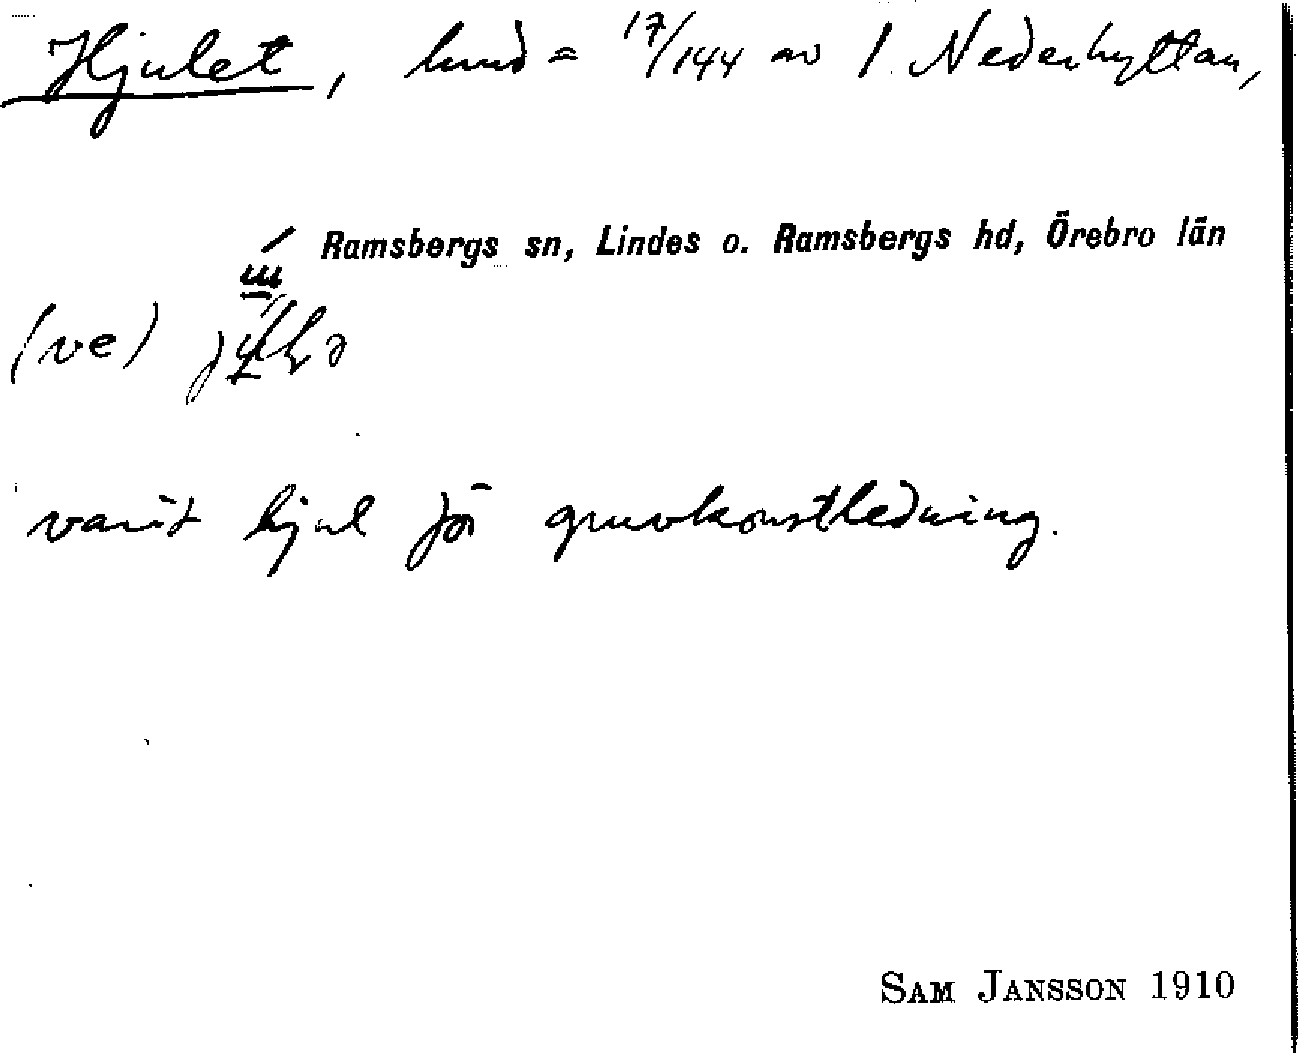 Hjulet, hmd = 17/144 av 1 Nederhyttan,
Ramsbergs sn, Lindes o. Ramsbergs hd, Örebro län
(ve)
varit hjul för gruvkonstledning.
SAM JANSSON 1910